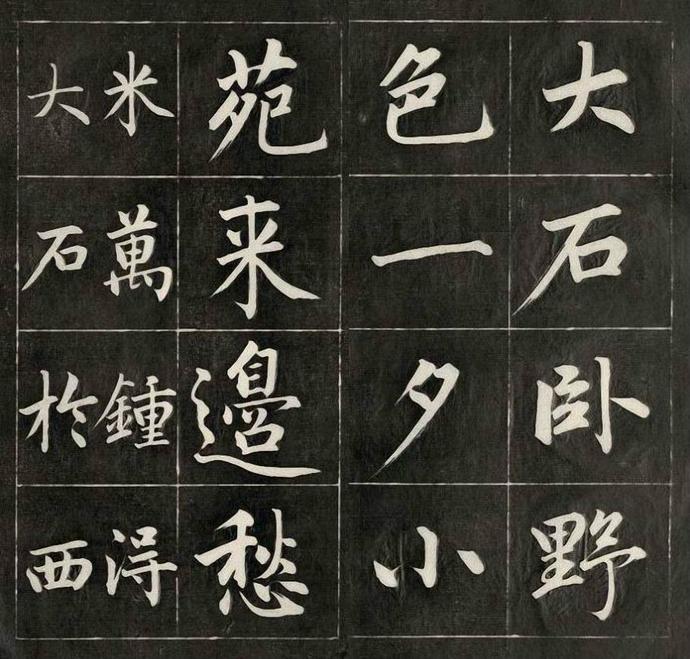 大石卧野
色一夕小
苑来邉愁
米萬鍾淂
大石於西